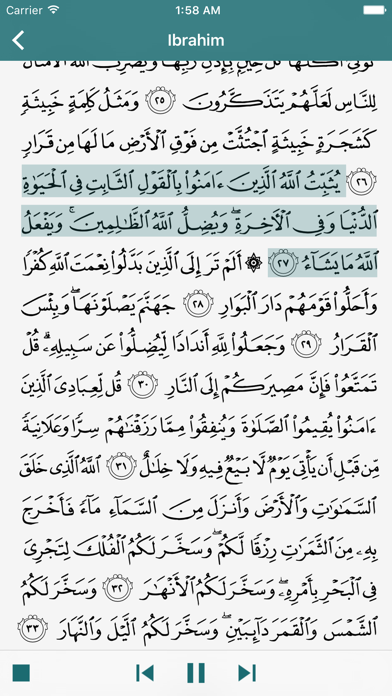 Carrier 1:58 AM
Ibrahim
تُؤْتِىٓ أُكُلَهَا كُلَّ حِينٍۭ بِإِذْنِ رَبِّهَا ۗ وَيَضْرِبُ ٱللَّهُ ٱلْأَمْثَالَ
لِلنَّاسِ لَعَلَّهُمْ يَتَذَكَّرُونَ ٢٥ وَمَثَلُ كَلِمَةٍ خَبِيثَةٍ
كَشَجَرَةٍ خَبِيثَةٍ ٱجْتُثَّتْ مِن فَوْقِ ٱلْأَرْضِ مَا لَهَا مِن قَرَارٍ
٢٦ يُثَبِّتُ ٱللَّهُ ٱلَّذِينَ ءَامَنُوا۟ بِٱلْقَوْلِ ٱلثَّابِتِ فِى ٱلْحَيَوٰةِ
ٱلدُّنْيَا وَفِى ٱلْـَٔاخِرَةِ ۖ وَيُضِلُّ ٱللَّهُ ٱلظَّـٰلِمِينَ ۚ وَيَفْعَلُ
ٱللَّهُ مَا يَشَآءُ ٢٧ ۞ أَلَمْ تَرَ إِلَى ٱلَّذِينَ بَدَّلُوا۟ نِعْمَتَ ٱللَّهِ كُفْرًا
وَأَحَلُّوا۟ قَوْمَهُمْ دَارَ ٱلْبَوَارِ ٢٨ جَهَنَّمَ يَصْلَوْنَهَا ۖ وَبِئْسَ
ٱلْقَرَارُ ٢٩ وَجَعَلُوا۟ لِلَّهِ أَندَادًا لِّيُضِلُّوا۟ عَن سَبِيلِهِۦ ۗ قُلْ
تَمَتَّعُوا۟ فَإِنَّ مَصِيرَكُمْ إِلَى ٱلنَّارِ ٣٠ قُل لِّعِبَادِىَ ٱلَّذِينَ
ءَامَنُوا۟ يُقِيمُوا۟ ٱلصَّلَوٰةَ وَيُنفِقُوا۟ مِمَّا رَزَقْنَـٰهُمْ سِرًّا وَعَلَانِيَةً
مِّن قَبْلِ أَن يَأْتِىَ يَوْمٌ لَّا بَيْعٌ فِيهِ وَلَا خِلَـٰلٌ ٣١ ٱللَّهُ ٱلَّذِى خَلَقَ
ٱلسَّمَـٰوَٰتِ وَٱلْأَرْضَ وَأَنزَلَ مِنَ ٱلسَّمَآءِ مَآءً فَأَخْرَجَ
بِهِۦ مِنَ ٱلثَّمَرَٰتِ رِزْقًا لَّكُمْ ۖ وَسَخَّرَ لَكُمُ ٱلْفُلْكَ لِتَجْرِىَ
فِى ٱلْبَحْرِ بِأَمْرِهِۦ ۖ وَسَخَّرَ لَكُمُ ٱلْأَنْهَـٰرَ ٣٢ وَسَخَّرَ لَكُمُ
ٱلشَّمْسَ وَٱلْقَمَرَ دَآئِبَيْنِ ۖ وَسَخَّرَ لَكُمُ ٱلَّيْلَ وَٱلنَّهَارَ ٣٣